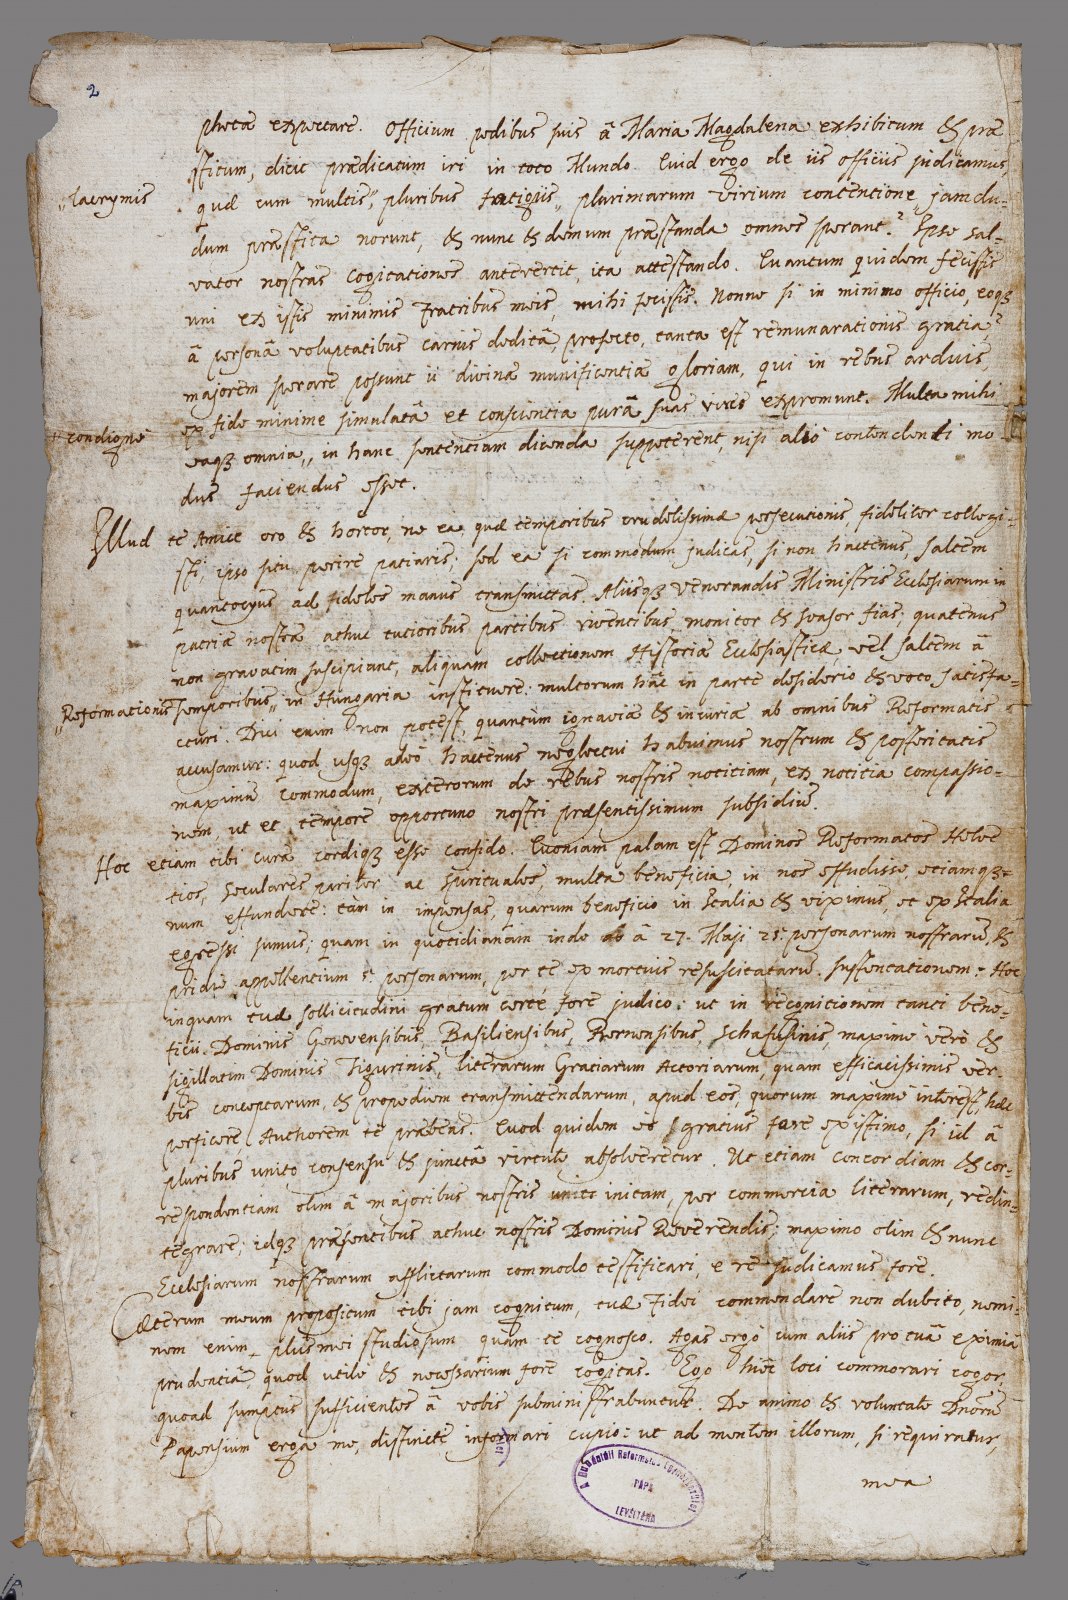 2
phetã expectare. Officium pedibus suis â Maria Magdalena exhibitum & præ-
stitum, dicit prædicatum iri in toto Mundo. Quid ergo de iis officiis judicamus,
„lacrymis
quæ cum multis„ pluribus fatigiis„ plurimarum virium contentione, jamdu-
dum præstita norunt, & nunc & demum præstanda omnes sperant? Ipse Sal-
vator nostras cogitationes antevertit, ita attestando. Quantum quidem fecistis
uni ex istis minimis fratribus meis, mihi fecistis. Nonne si in minimo officio, eoq3
â personâ voluptatibus carnis deditâ, profecto, tanta est remunarationis gratia?
majorem sperare possunt ii divinæ munificentiæ gloriam, qui in rebus arduis,
ex fide minime simulatâ et conscientia purâ suas vires expromunt. Multa mihi
„condignè
eaq3 omnia„ in hanc sententiam dicenda suppeterent, nisi aliò contendenti mo-
dus faciendus esset.
Illud te Amice oro & hortor, ne ea, quæ temporibus crudelissimæ persecutionis, fideliter collegi-
sti, ipso situ perire patiaris; sed ea si commodum judicas, si non hactenus, saltem
quantocyus ad fideles manus transmittas. Aliisq3 Venerandis Ministris Ecclesiarum in
patriæ nostræ, adhuc tutioribus partibus viventibus, monitor & svasor fias; quatenus
non gravatim suscipiant, aliquam collectionem Historiæ Ecclesiasticæ, vel saltem â
„Reformationis
temporibus„ in Hungaria instituere: multorum hâc in parte desiderio & voto satisfa-
cturi. Dici enim non potest, quantùm ignaviæ & injuriæ ab omnibus Reformatis
accusamur: quod usq3 adeò hactenus neglectui habuimus nostrum & posteritatis
maximũ commodum, exterorum de rebus nostris notitiam, ex notitia compassio-
nem, ut et tempore opportuno nostri præsentissimum subsidiũ.
Hoc etiam tibi curæ cordiq3 esse confido. Quoniam palam est Dominos Reformatos Helve-
tios, Seculares pariter ac Spirituales, multa beneficia in nos effudisse, etiamq3
num effundere: tàm in impensas, quarum beneficio in Italia & viximus, et ex Italia
egressi sumus; quam in quotidianam inde â 27. Maji 25. personarum nostrarũ, &
pridie appellentium 5. personarum, per te ex mortuis resuscitatarũ sustentationem: Hoc
inquam tuæ sollicitudini gratum certè fore judico: ut in recognitionem tanti bene-
ficii Dominis Genevensibus, Basiliensibus, Bernensibus, Schafusinis, maxime verò &
sigillatim Dominis Tigurinis, literarum Gratiarum Actoriarum, quam efficacissimis ver-
bis conceptarum, & propediem transmittendarum, apud eos, quorum maximè interest, hæc
perficere Authorem te præbeas. Quod quidem eò gratius fore existimo, si id â
pluribus unito consensu & junctâ virtute absolveretur. Ut etiam concordiam & cor-
respondentiam olim â majoribus nostris initam, per commercia literarum, redin-
tegrare; idq3 præsentibus adhuc nostris Dominis Reverendis; maximo olim & nunc
Ecclesiarum nostrarum afflictarum commodo testificari, e re judicamus fore.
Cæterum meum propositum tibi jam cognitum, tuæ Fidei commendare non dubito, nemi-
nem enim plus mei studiosum quam te cognosco. Agas ergò cum aliis pro tuâ eximiâ
prudentiâ, quod utile & necessarium fore cogitas. Ego hîc loci commorari cogor,
quoad sumptus sufficientes â vobis subministrabuntur. De animo & voluntate Dnorũ
Papensium erga me, distincte, informari cupio: ut ad mentem illorum, si requiratur,
mea
A Dunántúli Református Egyházkerület
PÁPA
LEVÉLTÁRA